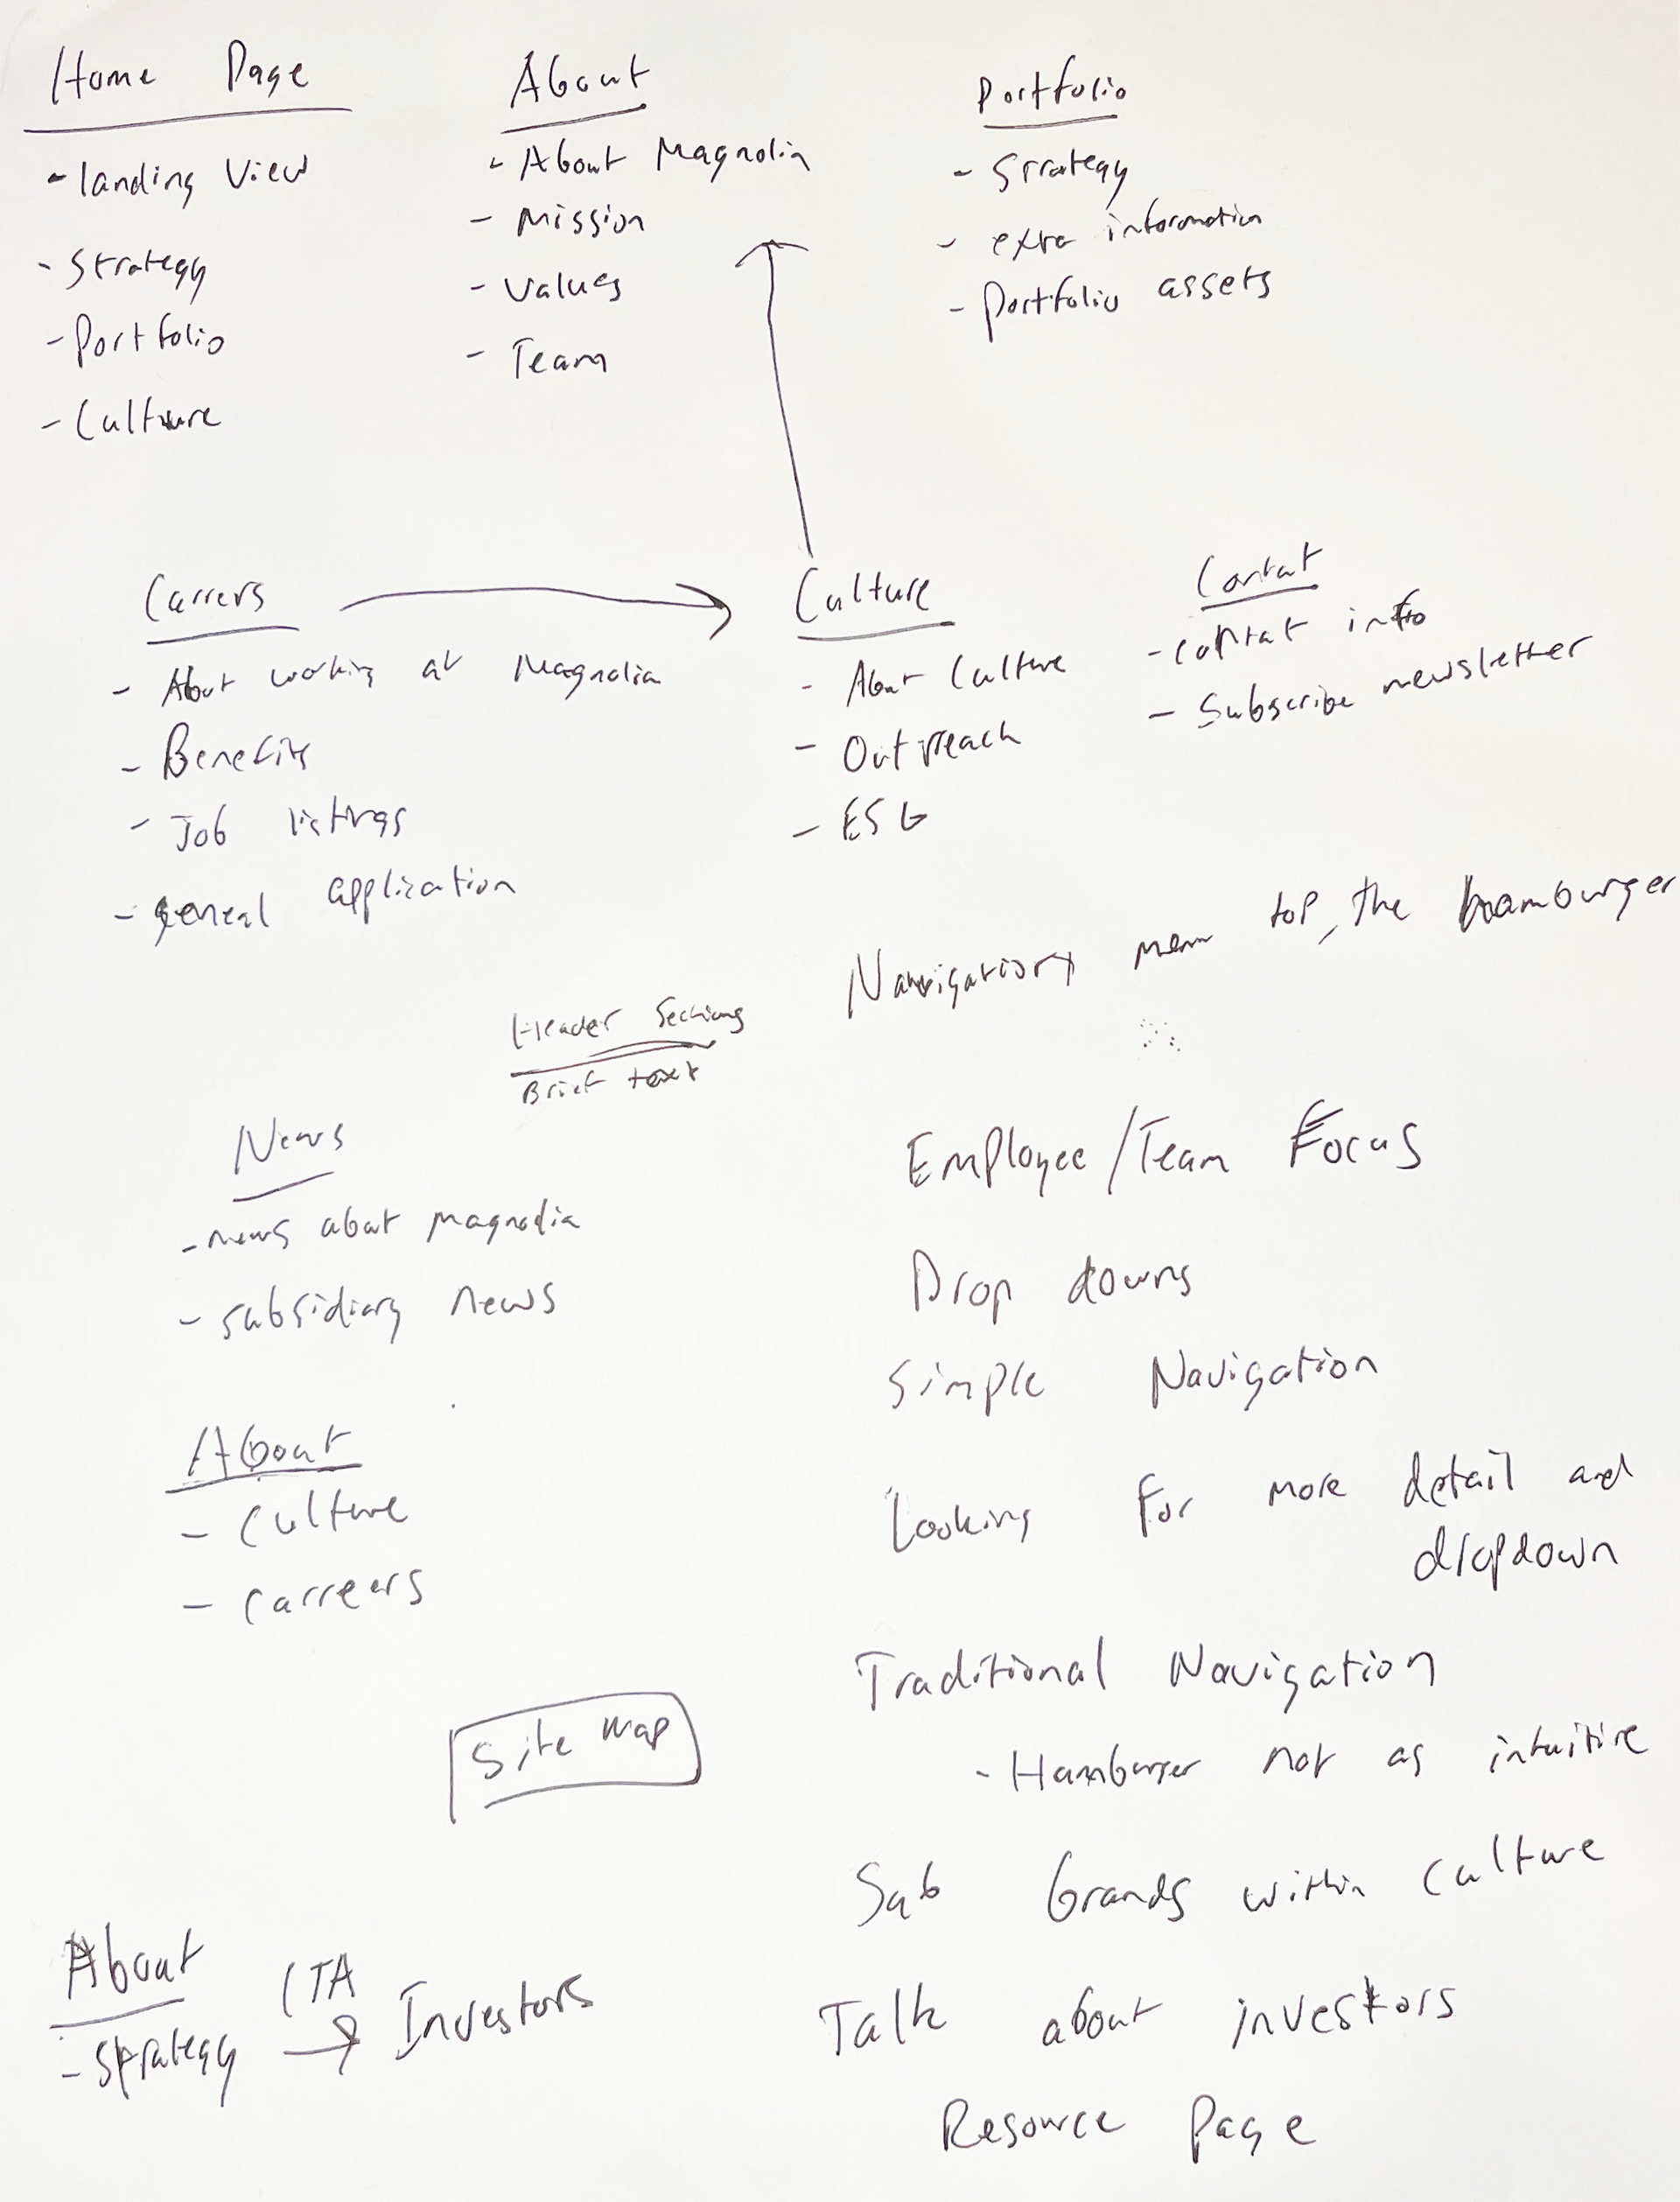 Home Page
- landing View
- Strategy
- Portfolio
- Culture
About
- About Magnolia
- Mission
- Values
- Team
Portfolio
- Strategy
- extra information
- Portfolio assets
Carrers
- About working at Magnolia
- Benefits
- Job listings
- general application
Culture
- About Culture
- Outreach
- ESG
Contat
- contat info
- Subscribe newsletter
Navigation menu top, the hamburger
Header Sections
Brief text
News
- news about magnolia
- subsidiary news
Employee/Team Focus
Drop downs
Simple Navigation
Looking For more detail and
dropdown
About
- Culture
- Carreers
Traditional Navigation
- Hamburger not as intuitive
Site Map
Sub brands within culture
About
- Strategy
CTA
Investors
Talk about investors
Resource Page